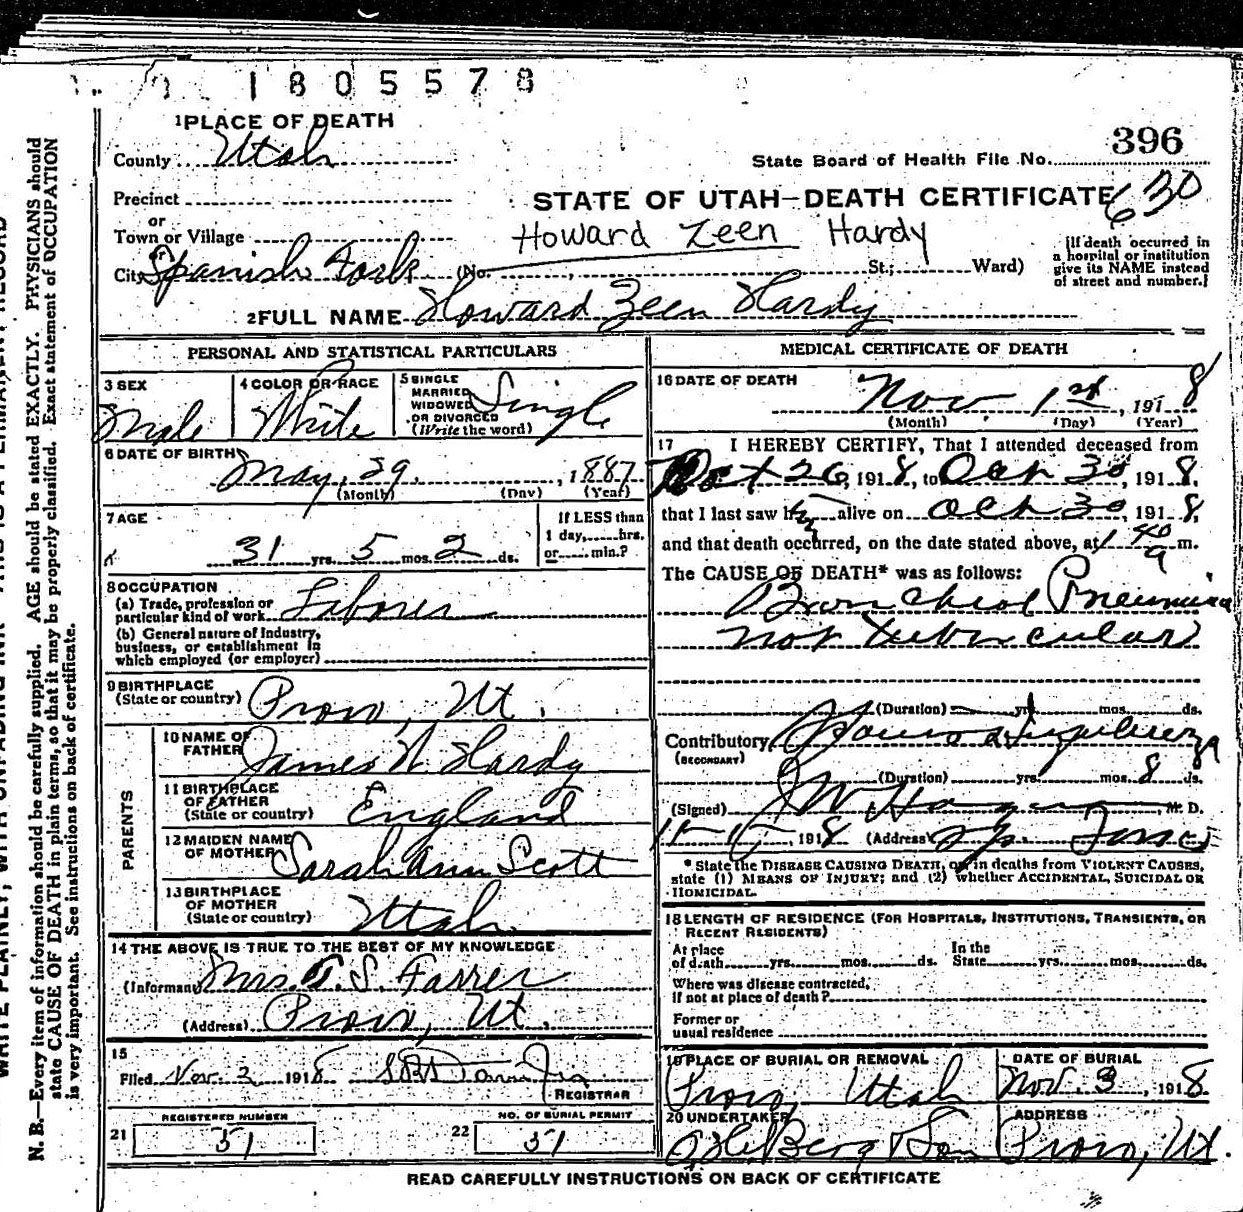 1805578
1 PLACE OF DEATH
County Utah
396
State Board of Health File No.
Precinct
STATE OF UTAH—DEATH CERTIFICATE 630
or
Town or Village
Howard Zeen Hardy
or
City Spanish Fork (No. St.; Ward)
[If death occurred in
a hospital or institution
give its NAME instead
of street and number.]
2 FULL NAME Howard Zeen Hardy
PERSONAL AND STATISTICAL PARTICULARS
3 SEX
Male
4 COLOR OR RACE
White
5 SINGLE
MARRIED
WIDOWED
OR DIVORCED
(Write the word)
Single
6 DATE OF BIRTH
May, 29, 1887
(Month) (Day) (Year)
7 AGE
31 yrs. 5 mos. 2 ds.
If LESS than
1 day, hrs.
or min.?
8 OCCUPATION
(a) Trade, profession or
particular kind of work Laborer
(b) General nature of Industry,
business, or establishment in
which employed (or employer)
9 BIRTHPLACE
(State or country) Provo, Ut.
PARENTS
10 NAME OF
FATHER James N. Hardy
11 BIRTHPLACE
OF FATHER
(State or country) England
12 MAIDEN NAME
OF MOTHER Sarah Ann Scott
13 BIRTHPLACE
OF MOTHER
(State or country) Utah
14 THE ABOVE IS TRUE TO THE BEST OF MY KNOWLEDGE
(Informant) Mrs. T. S. Farrer
(Address) Provo, Ut.
15
Filed Nov. 2 1918
REGISTRAR
REGISTERED NUMBER
21 51
NO. OF BURIAL PERMIT
22 51
MEDICAL CERTIFICATE OF DEATH
16 DATE OF DEATH
Nov. 1st, 1918
(Month) (Day) (Year)
17 I HEREBY CERTIFY, That I attended deceased from
Oct 26, 1918, to Oct 30, 1918,
that I last saw him alive on Oct 30, 1918,
and that death occurred, on the date stated above, at 1 40 a m.
The CAUSE OF DEATH* was as follows:
Bronchial Pneumonia
not tubercular
(Duration) yrs. mos. ds.
Contributory Influenza
(SECONDARY)
(Duration) yrs. mos. 8 ds.
(Signed) M. D.
1918 (Address) Sp. Fork
*State the DISEASE CAUSING DEATH, or, in deaths from VIOLENT CAUSES,
state (1) MEANS OF INJURY; and (2) whether ACCIDENTAL, SUICIDAL OR
HOMICIDAL.
18 LENGTH OF RESIDENCE (FOR HOSPITALS, INSTITUTIONS, TRANSIENTS, OR
RECENT RESIDENTS)
At place
of death yrs. mos. ds.
In the
State yrs. mos. ds.
Where was disease contracted,
if not at place of death?
Former or
usual residence
19 PLACE OF BURIAL OR REMOVAL
Provo, Utah
DATE OF BURIAL
Nov. 3, 1918
20 UNDERTAKER
Berg & Son
ADDRESS
Provo, Ut.
READ CAREFULLY INSTRUCTIONS ON BACK OF CERTIFICATE
N. B.—Every item of information should be carefully supplied. AGE should be stated EXACTLY. PHYSICIANS should
state CAUSE OF DEATH in plain terms, so that it may be properly classified. Exact statement of OCCUPATION
is very important. See instructions on back of certificate.